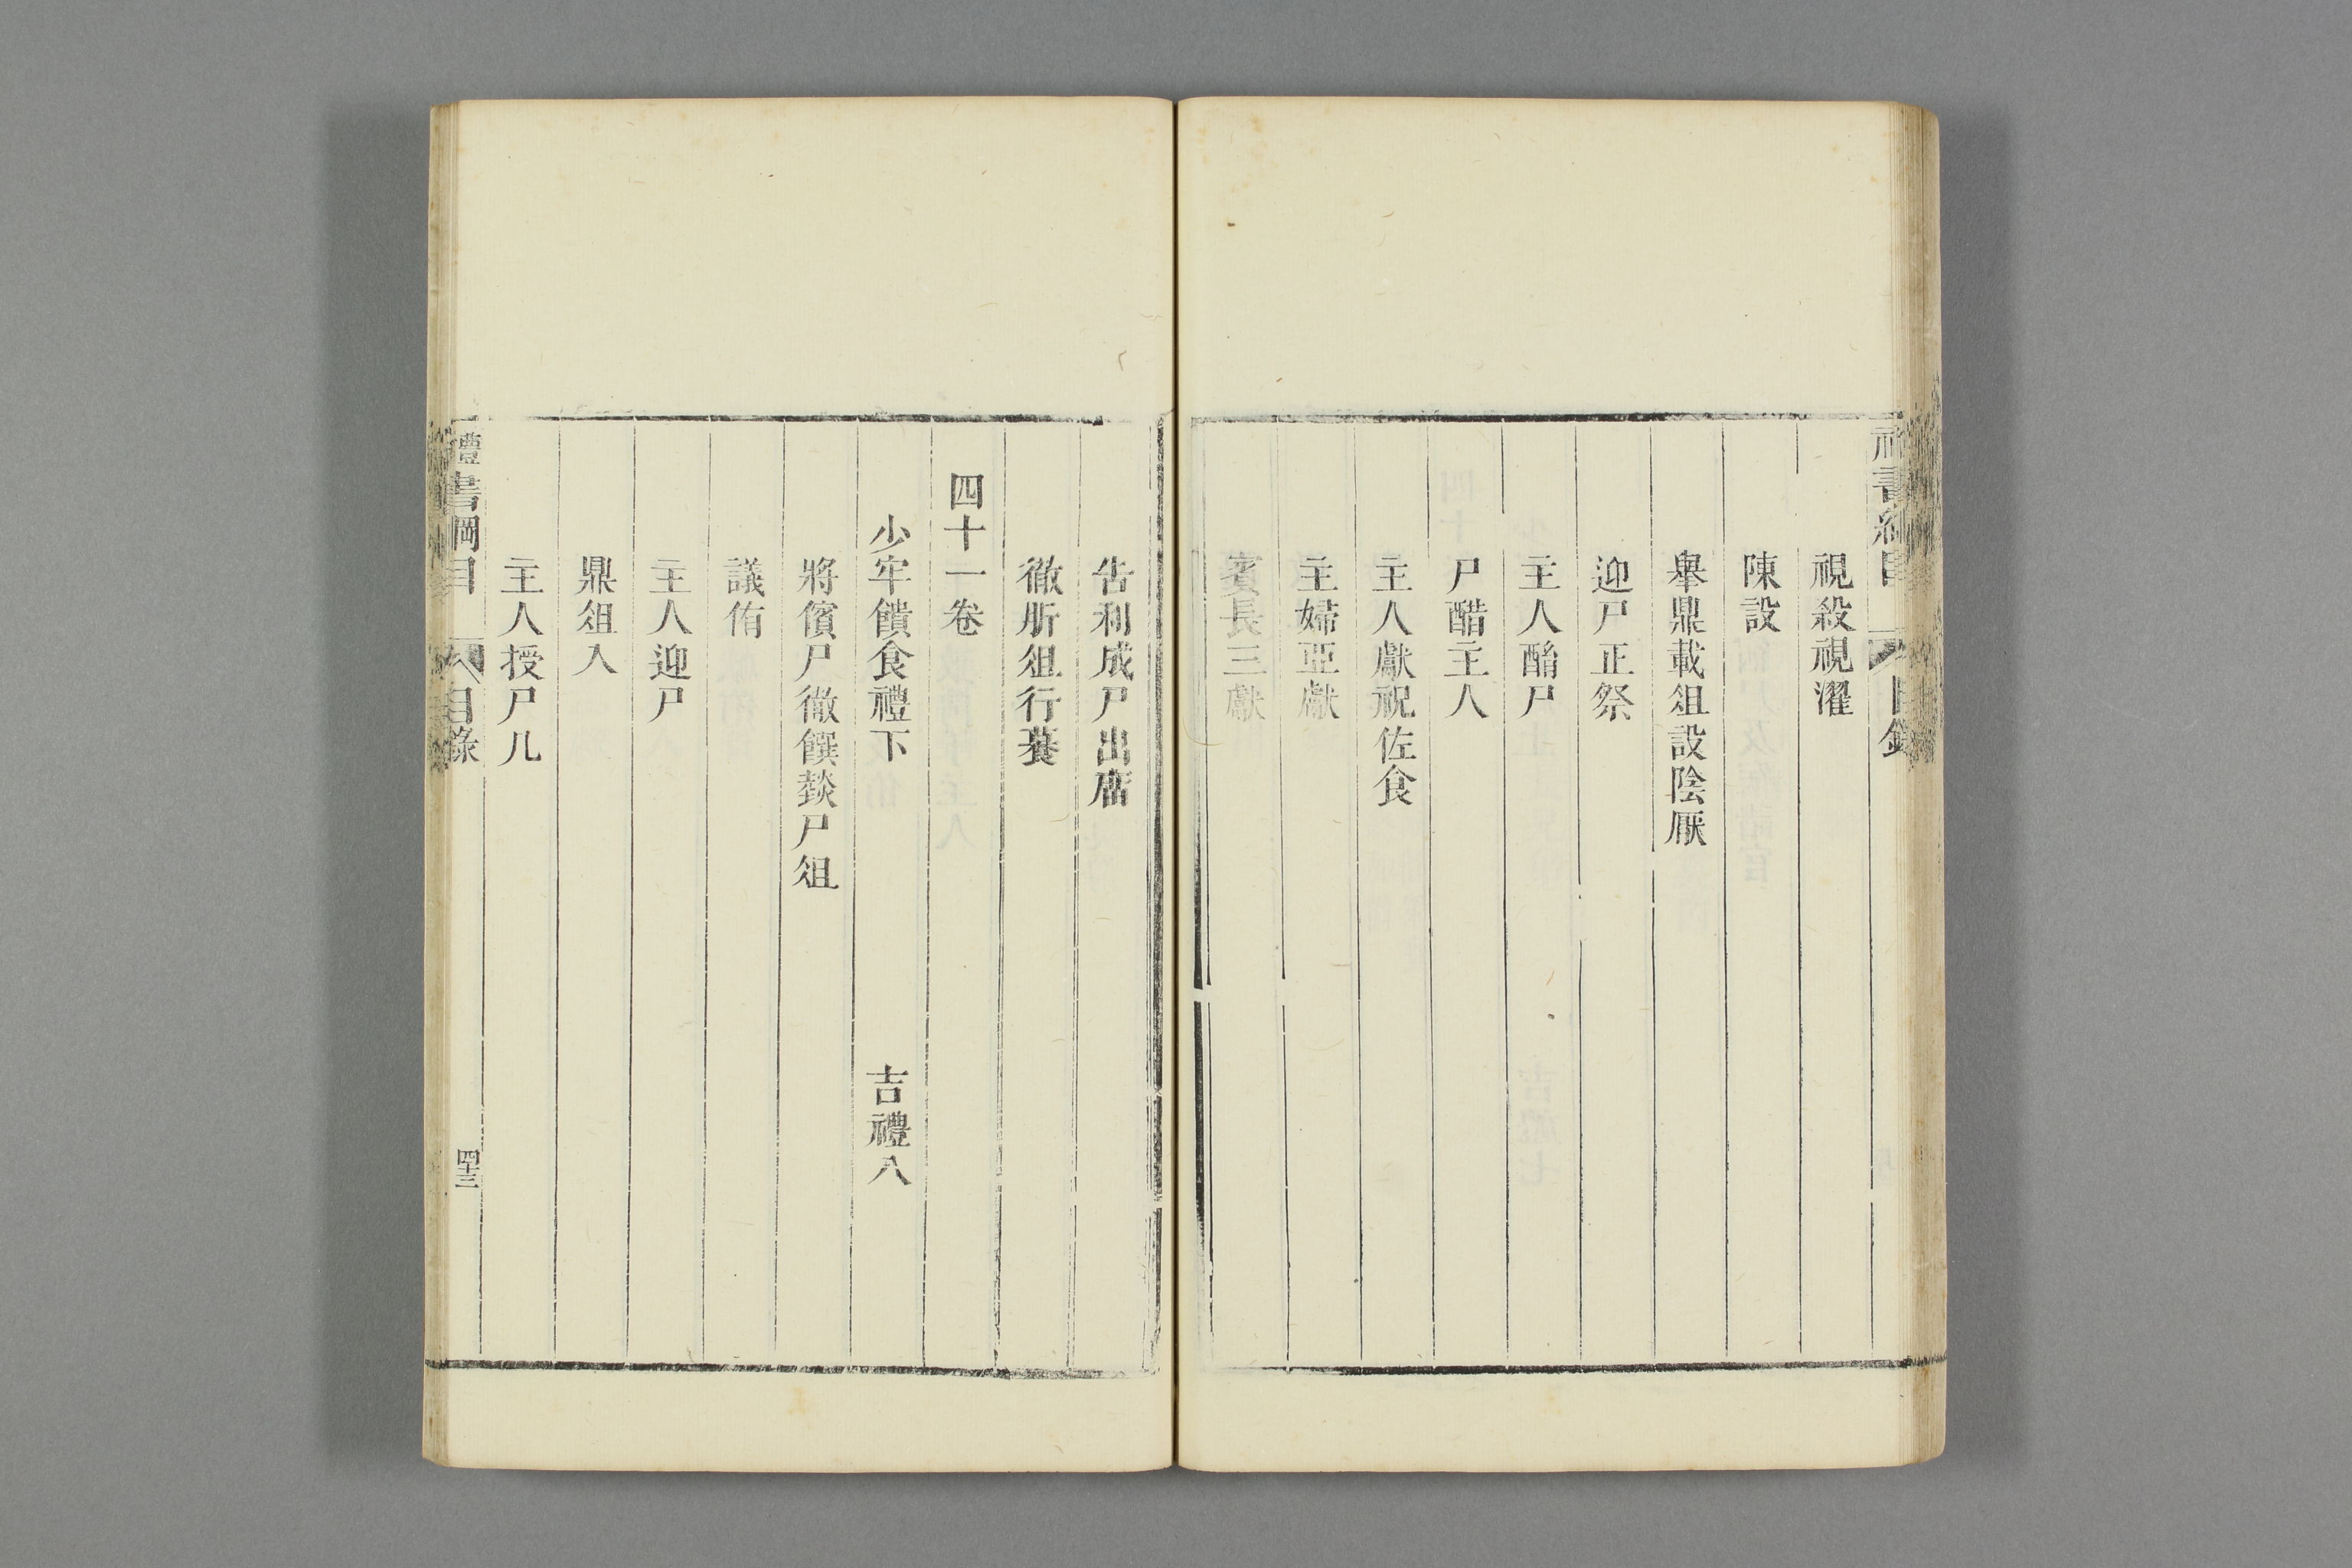 禮書綱目　目錄
視殺視濯
陳設
舉鼎載俎設陰厭
迎尸正祭
主人酳尸
尸酢主人
主人獻祝佐食
主婦亞獻
賓長三獻
告利成尸出廟
徹肵俎行䭕
四十一卷
少牢饋食禮下　吉禮八
將儐尸徹饌燅尸俎
議侑
主人迎尸
鼎俎入
主人授尸几
禮書綱目　目錄　四十三